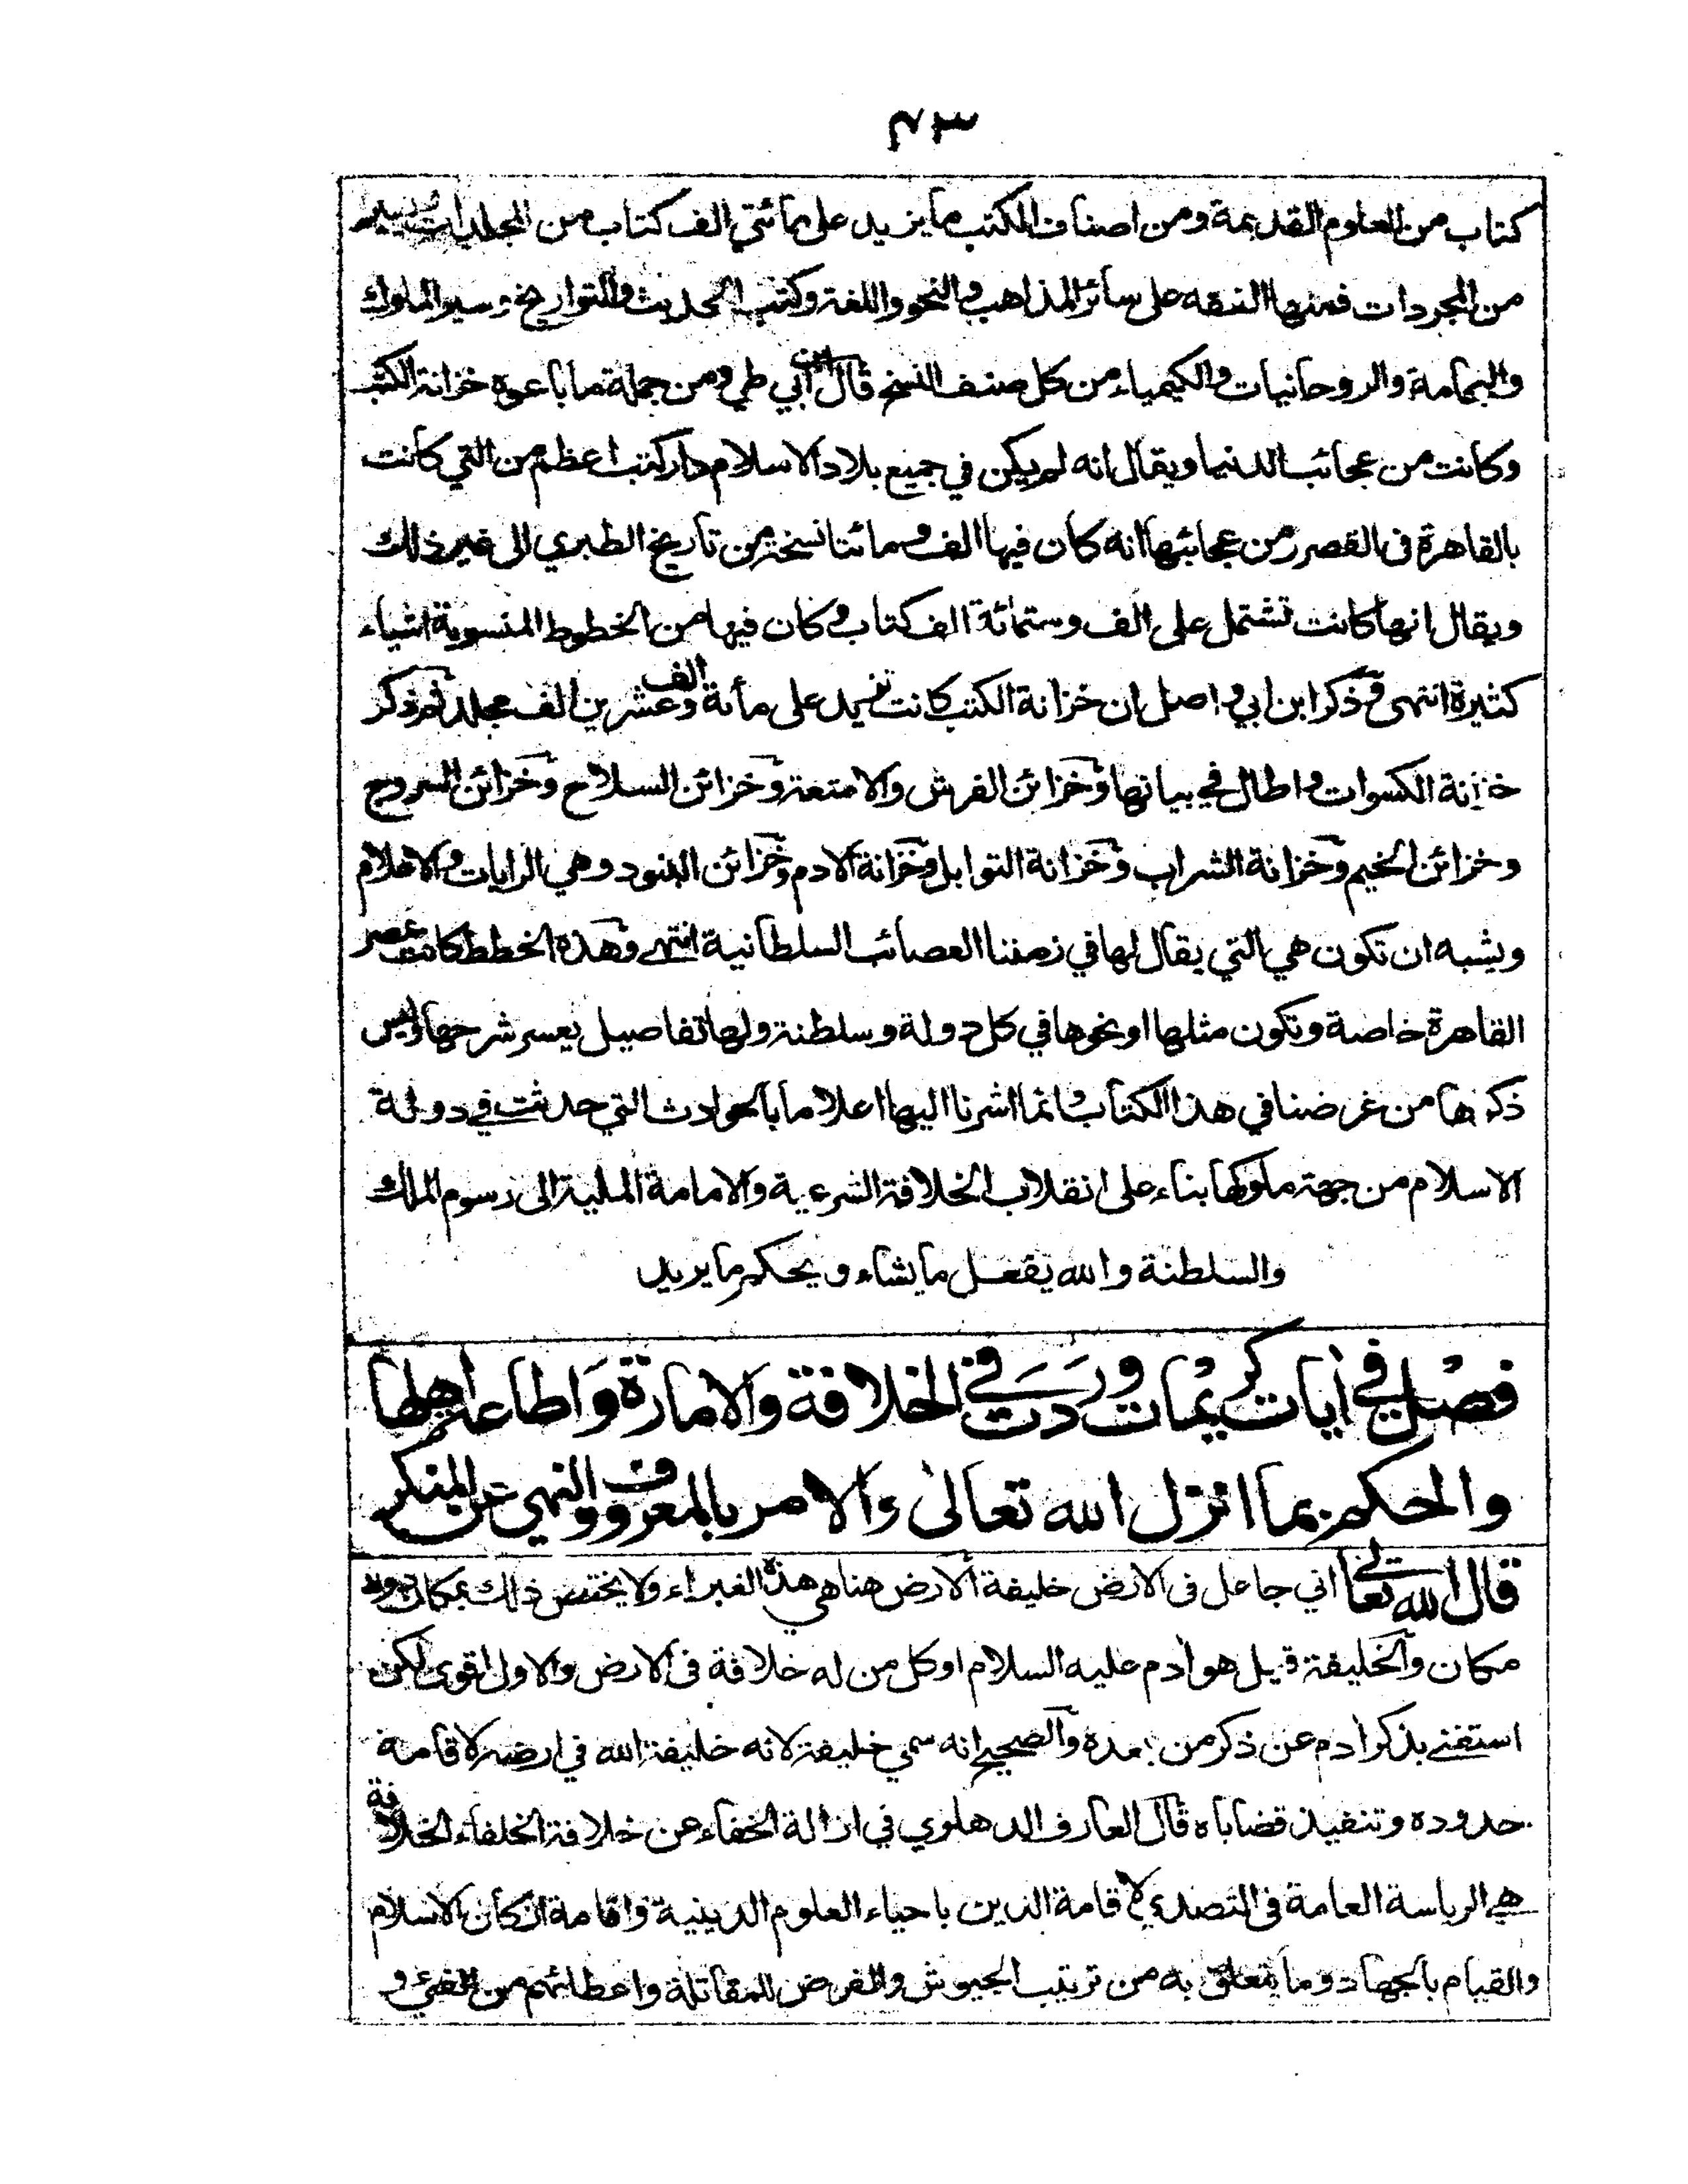 ٤٣
كتاب من العلوم القديمة ومن اصناف الكتب ما يزيد على مائتي الف كتاب من المجلدات ويسير
من المجردات فمنها الفقه على سائر المذاهب والنحو واللغة وكتب الحديث والتواريخ وسير الملوك
والنجامة والروحانيات والكيمياء من كل صنف النسخ قال ابن أبي طي ومن جملة ما باعوه خزانة الكتب
وكانت من عجائب الدنيا ويقال انه لم يكن في جميع بلاد الاسلام دار كتب اعظم من التي كانت
بالقاهرة في القصر ومن عجائبها انه كان فيها الف ومائتا نسخة من تأريخ الطبري الى غير ذلك
ويقال انها كانت تشتمل على الف وستمائة الف كتاب وكان فيها من الخطوط المنسوبة اشياء
كثيرة انتهى وذكر ابن ابي واصل ان خزانة الكتب كانت تزيد على مأئة الف وعشرين الف مجلد ثم ذكر
خزانة الكسوات واطال في بيانها وخزائن الفرش والامتعة وخزائن السلاح وخزائن السروج
وخزائن الخيم وخزانة الشراب وخزانة التوابل وخزانة الادم وخزائن البنود وهي الرايات والاعلام
ويشبه ان تكون هي التي يقال لها في زمننا العصائب السلطانية انتهى وهذه الخطط كانت بمصر
القاهرة خاصة وتكون مثلها او نحوها في كل دولة وسلطنة ولها تفاصيل يعسر شرحها وليس
ذكرها من غرضنا في هذا الكتاب وانما اشرنا اليها اعلاما بالحوادث التي حدثت في دولة
الاسلام من جهة ملوكها بناء على انقلاب الخلافة الشرعية والامامة الملية الى رسوم الملك
والسلطنة والله يفعل ما يشاء ويحكم ما يريد
فصل في أيات كريمات وردت في الخلافة والامارة واطاعة اهلها
والحكم بما انزل الله تعالى والامر بالمعروف والنهي عن المنكر
قال الله تعالى اني جاعل في الارض خليفة الارض هنا هي هذه الغبراء ولا يختص ذلك بمكان دون
مكان والخليفة قيل هو أدم عليه السلام او كل من له خلافة في الارض والاول اقوى لكن
استغني بذكر أدم عن ذكر من بعده والصحيح انه سمي خليفة لانه خليفة الله في ارضه لاقامة
حدوده وتنفيذ قضاياه قال العارف الدهلوي في ازالة الخفاء عن خلافة الخلفاء الخلافة
هي الرياسة العامة في التصدي لاقامة الدين باحياء العلوم الدينية واقامة اركان الاسلام
والقيام بالجهاد وما يتعلق به من ترتيب الجيوش والفرض للمقاتلة واعطائهم من الفيء و